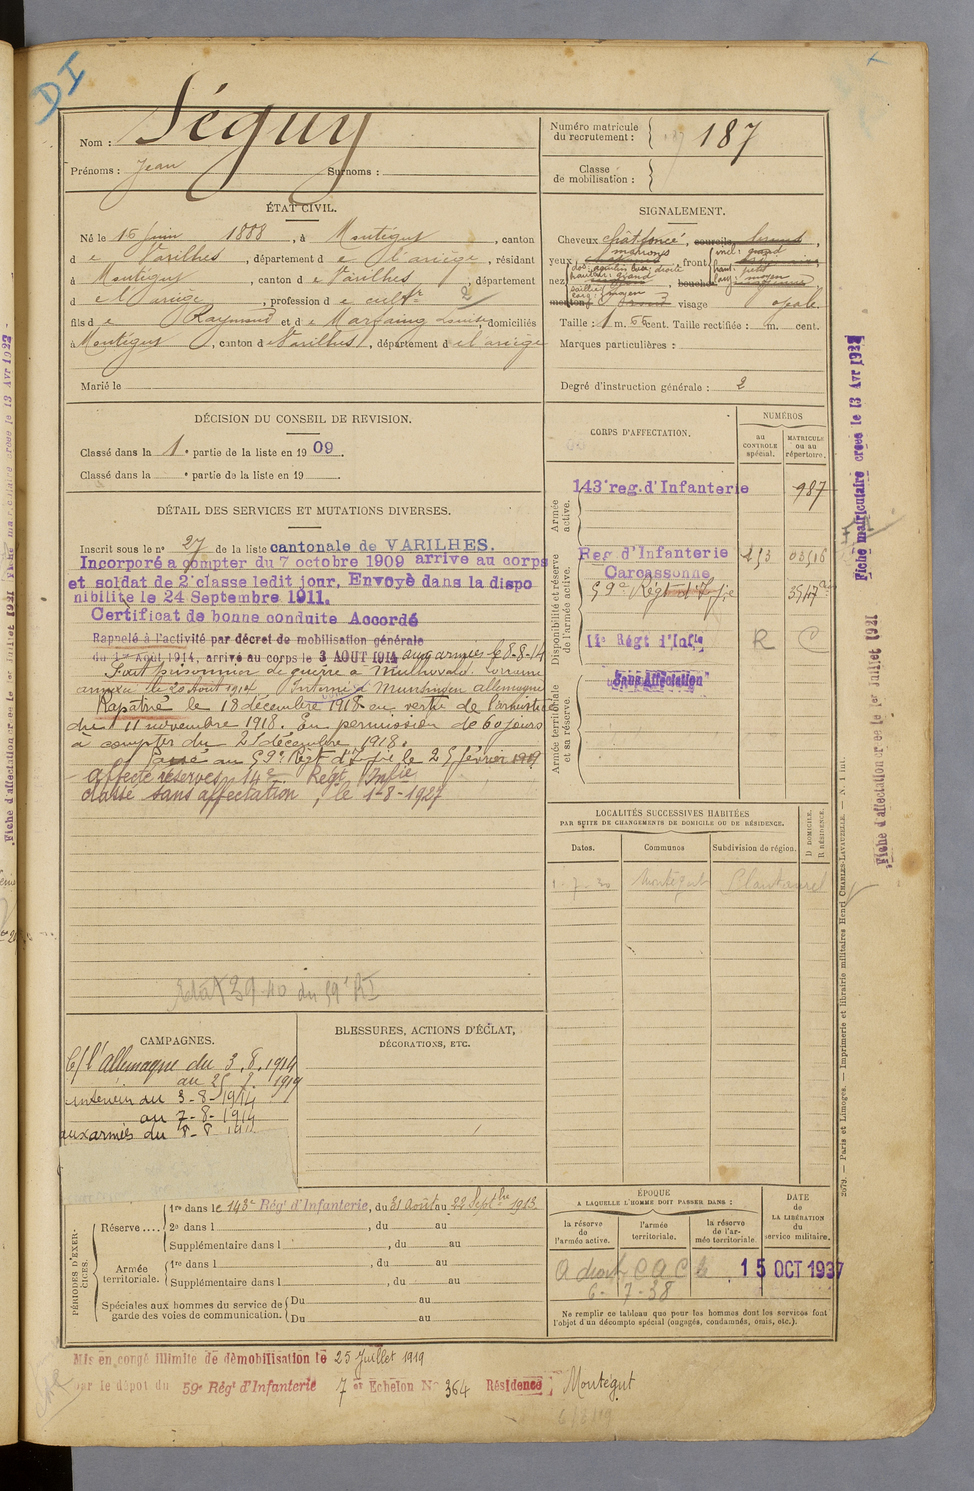 DI
Nom : Séguy
Prénoms : Jean Surnoms :
Numéro matricule du recrutement : 187
Classe de mobilisation :
ÉTAT CIVIL.
Né le 16 Juin 1888, à Montégut, canton
d e Varilhes, département d e l'ariège, résidant
à Montégut, canton d e Varilhes, département
d e l'ariège, profession d e cultr
fils d e Raymond et d e Marfaing Louise, domiciliés
à Montégut, canton d e Varilhes, département d e l'ariège
Marié le
SIGNALEMENT.
Cheveux chât foncé, sourcils
yeux marrons, front incl: grand
haut: petit
larg: moyen
nez dos: aquilin base: droite
hauteur: grand
saillie
larg: moyen
bouche
menton visage ovale.
Taille : 1 m. 66 cent. Taille rectifiée : m. cent.
Marques particulières :
Degré d'instruction générale : 2
DÉCISION DU CONSEIL DE REVISION.
Classé dans la 1e partie de la liste en 1909.
Classé dans la e partie de la liste en 19
CORPS D'AFFECTATION.
NUMÉROS
au CONTROLE spécial.
MATRICULE ou au répertoire.
Armée active.
143e reg. d'Infanterie 987
Disponibilité et réserve de l'armée active.
Reg d'Infanterie 253 03516
Carcassonne
59e Régt d'Infie
11e Régt d'Infie R C
Armée territoriale et sa réserve.
Sans Affectation
DÉTAIL DES SERVICES ET MUTATIONS DIVERSES.
Inscrit sous le n° 27 de la liste cantonale de VARILHES.
Incorporé à compter du 7 octobre 1909 arrivé au corps
et soldat de 2e classe ledit jour. Envoyé dans la dispo
nibilité le 24 Septembre 1911.
Certificat de bonne conduite Accordé
Rappelé à l'activité par décret de mobilisation générale
du 1er Août 1914, arrivé au corps le 3 AOUT 1914 aux armées le 8-8-14
Fait prisonnier de guerre à Lorraine
annexée le 20 Août 1914. Interné à allemagne
Rapatrié le 18 décembre 1918 en vertu de l'armistice
du 11 novembre 1918. En permission de 60 jours
à compter du 21 décembre 1918.
Passé au 59e Régt d'Infie le 25 février 1919
Affecté réserves 14e Régt Infie
classé sans affectation, le 1-8-1927
39-40 du 59e RI
LOCALITÉS SUCCESSIVES HABITÉES
PAR SUITE DE CHANGEMENTS DE DOMICILE OU DE RÉSIDENCE.
Dates. Communes Subdivision de région. D DOMICILE. R RÉSIDENCE.
Montégut Plantaurel
CAMPAGNES.
C/ l'Allemagne du 3.8.1914
au 1919
intérieur du 3-8-1914
au 7-8-1914
aux armées du 8-8
BLESSURES, ACTIONS D'ÉCLAT,
DÉCORATIONS, ETC.
PÉRIODES D'EXERCICES.
Réserve....
1re dans le 143e Rég' d'Infanterie, du 31 Août au 22 Septbre 1913
2e dans l , du au
Supplémentaire dans l , du au
Armée territoriale.
1re dans l , du au
Supplémentaire dans l , du au
Spéciales aux hommes du service de garde des voies de communication.
Du au
Du au
ÉPOQUE
A LAQUELLE L'HOMME DOIT PASSER DANS :
la réserve de l'armée active.
l'armée territoriale.
la réserve de l'armée territoriale.
DATE DE LA LIBÉRATION du service militaire.
A droit CAC le 15 OCT 1937
6-7-38
Ne remplir ce tableau que pour les hommes dont les services font
l'objet d'un décompte spécial (engagés, condamnés, omis, etc.).
Mis en congé illimité de démobilisation le 25 Juillet 1919
par le dépôt du 59e Rég' d'Infanterie 7e Echelon N° 364 Résidence : Montégut
Fiche matriculaire créée le 13 Avr 1922
Fiche d'affectation créée le 1er Juillet 1921
2679. — Paris et Limoges. — Imprimerie et librairie militaires Henri CHARLES-LAVAUZELLE.